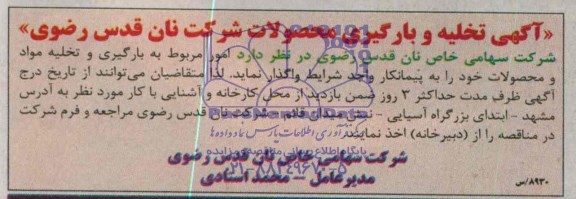 «آگهی تخلیه و بارگیری محصولات شرکت نان قدس رضوی»
شرکت سهامی خاص نان قدس رضوی در نظر دارد امور مربوط به بارگیری و تخلیه مواد
و محصولات خود را به پیمانکار واجد شرایط واگذار نماید. لذا متقاضیان می‌توانند از تاریخ درج
آگهی ظرف مدت حداکثر ۳ روز ضمن بازدید از محل کارخانه و آشنایی با کار مورد نظر به آدرس
مشهد - ابتدای بزرگراه آسیایی - نبش میدان قائم - شرکت نان قدس رضوی مراجعه و فرم شرکت
در مناقصه را از (دبیرخانه) اخذ نمایند.
شرکت سهامی خاص نان قدس رضوی
مدیرعامل – محمد استادی
۸۹۳۰/س